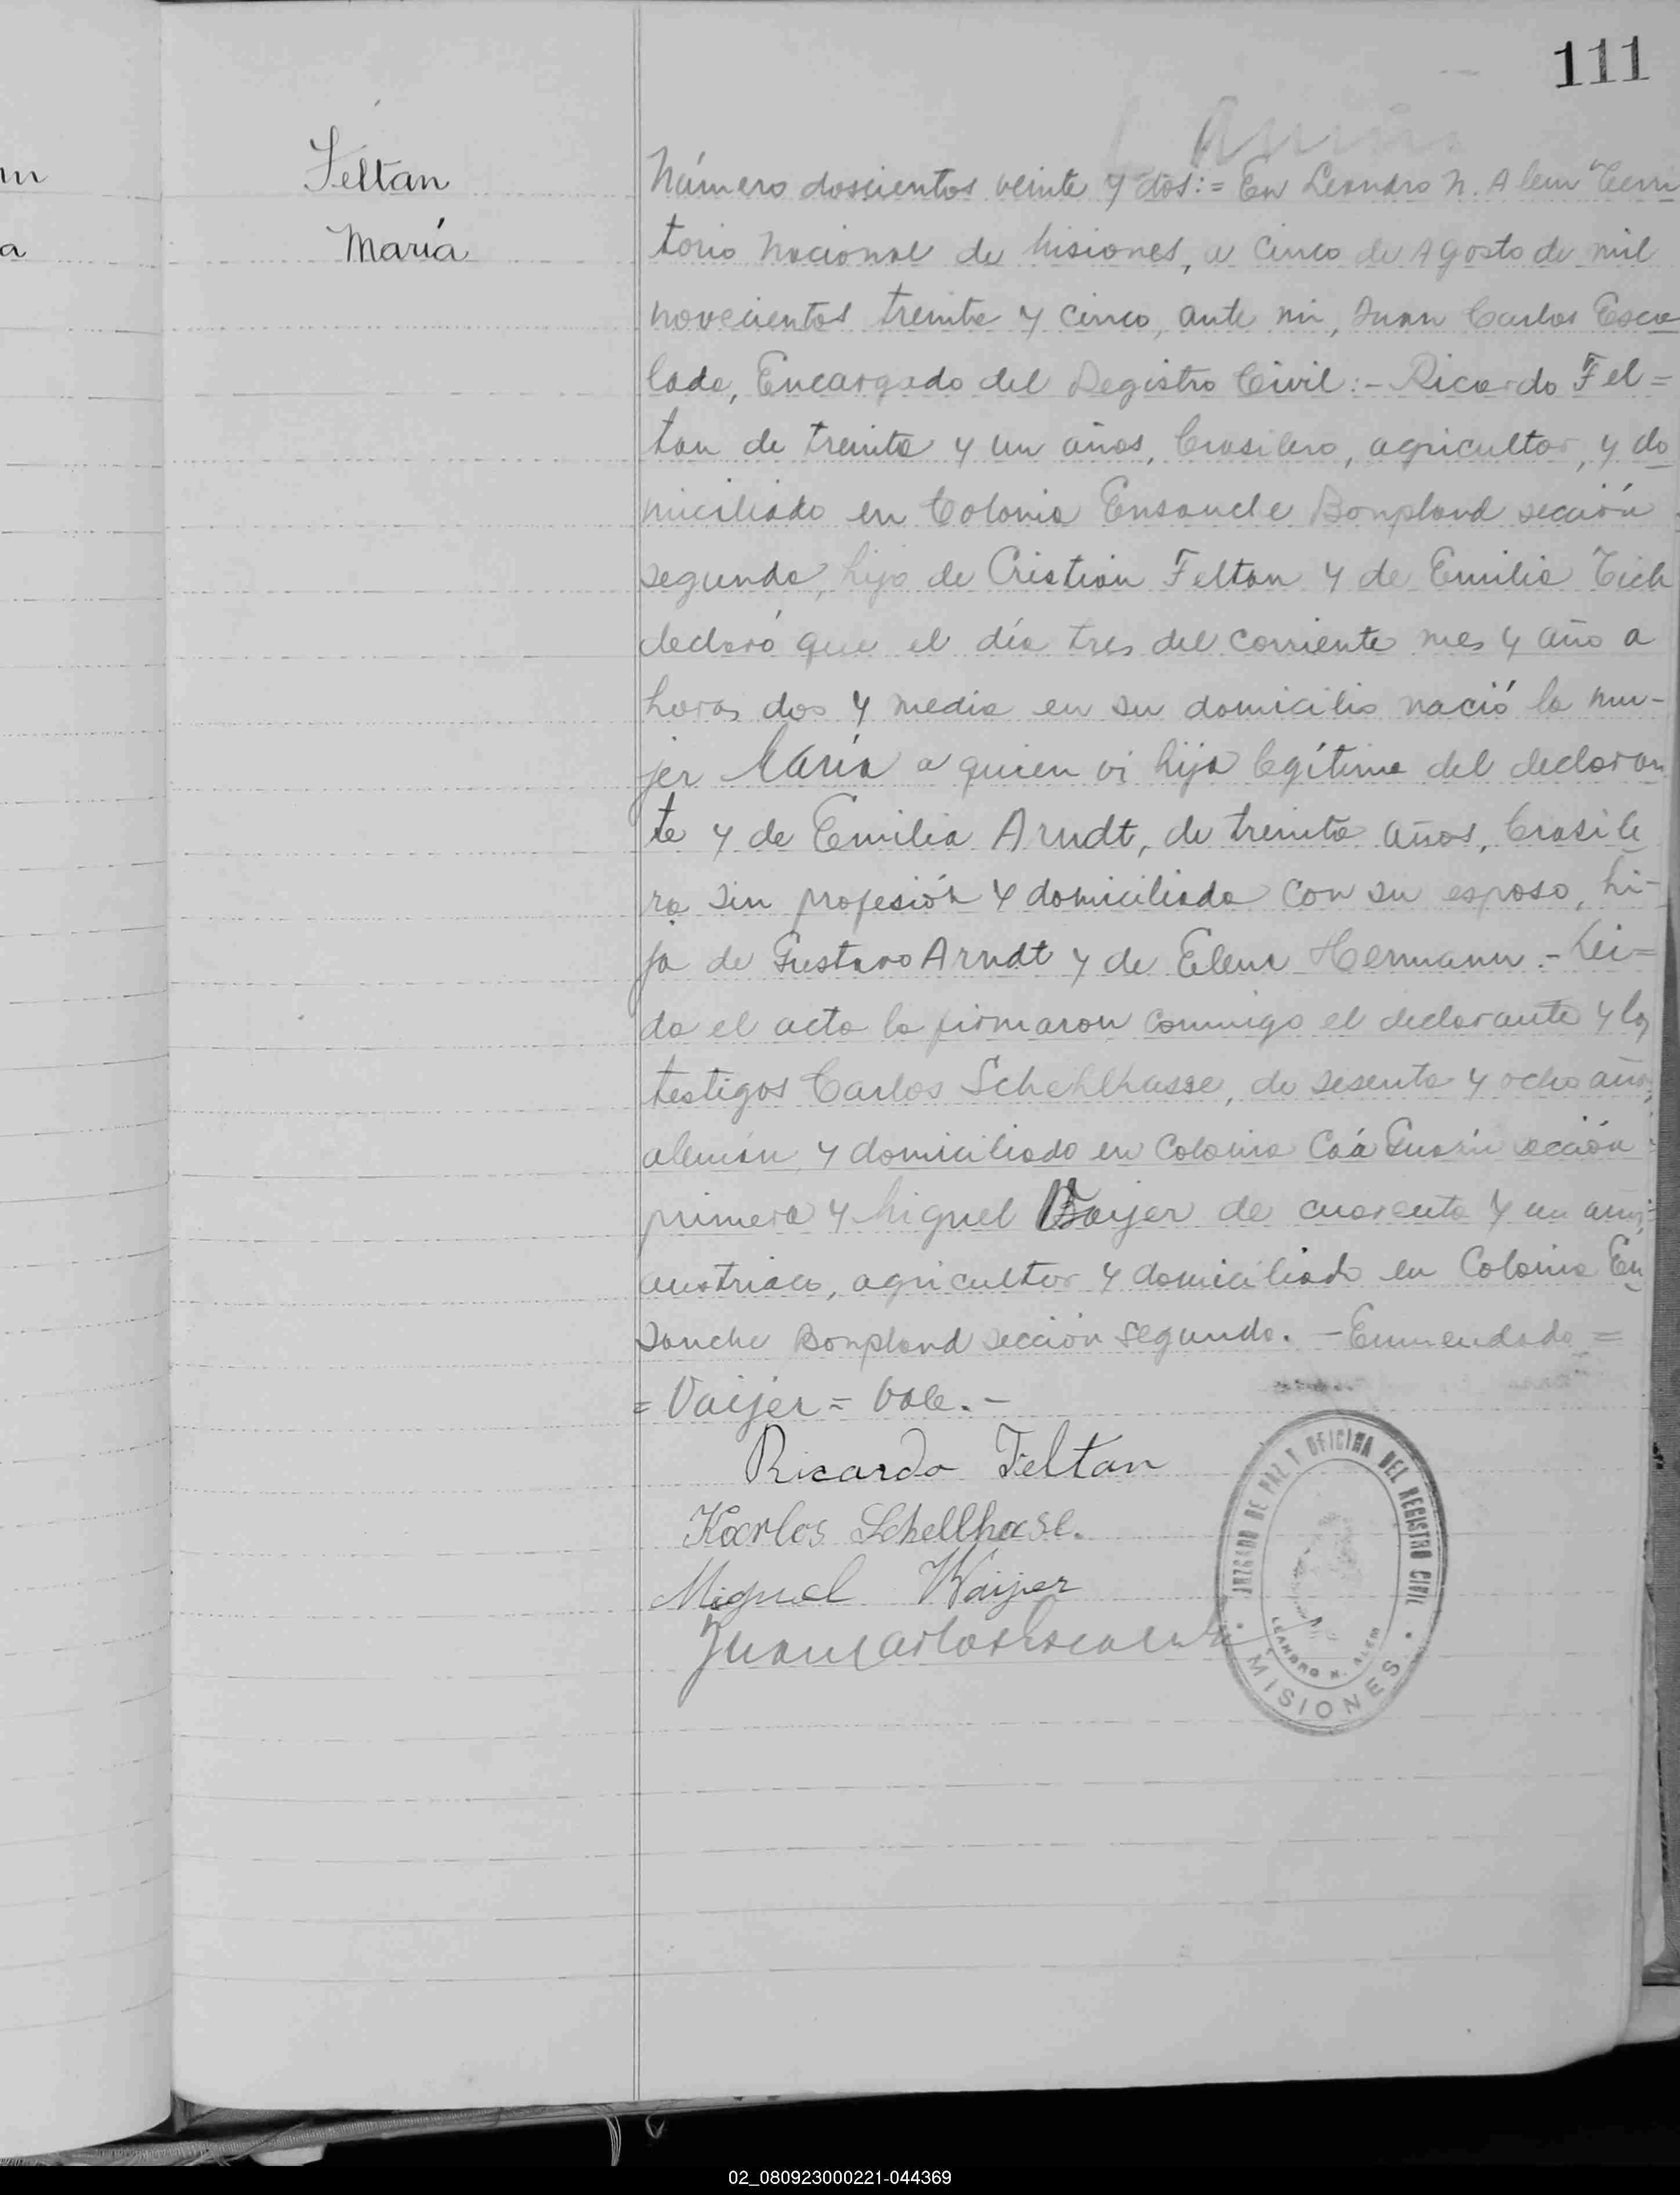 111
Feltan
María
Número doscientos veinte y dos:= En Leandro N. Alem Terri
torio Nacional de Misiones, a cinco de Agosto de mil
novecientos treinta y cinco, ante mi, Juan Carlos Esca
lada, Encargado del Registro Civil:- Ricardo Fel=
tan de treinta y un años, brasilero, agricultor, y do
miciliado en Colonia Ensanche Bonpland sección
segunda, hijo de Cristian Feltan y de Emilia Tich
declaró que el día tres del corriente mes y año a
horas dos y media en su domicilio nació la mu-
jer María a quien vi hija legítima del declaran
te y de Emilia Arndt, de treinta años, brasile
ra sin profesión y domiciliada con su esposo, hi-
ja de Gustavo Arndt y de Elena Hermann.- Lei=
da el acta la firmaron conmigo el declarante y los
testigos Carlos Schehlhasse, de sesenta y ocho años,
alemán y domiciliado en Colonia Caá Guazú sección
primera y Miguel Vaijer de cuarenta y un años,
austriaco, agricultor y domiciliado en Colonia En
sanche Bonpland sección segunda. - Enmendado =
= Vaijer = Vale. -
Ricardo Feltan
Karlos Schellhase.
Miguel Waijer
Juan Carlos Escalada
JUZGADO DE PAZ Y OFICINA DEL REGISTRO CIVIL
LEANDRO N. ALEM
MISIONES
02_080923000221-044369